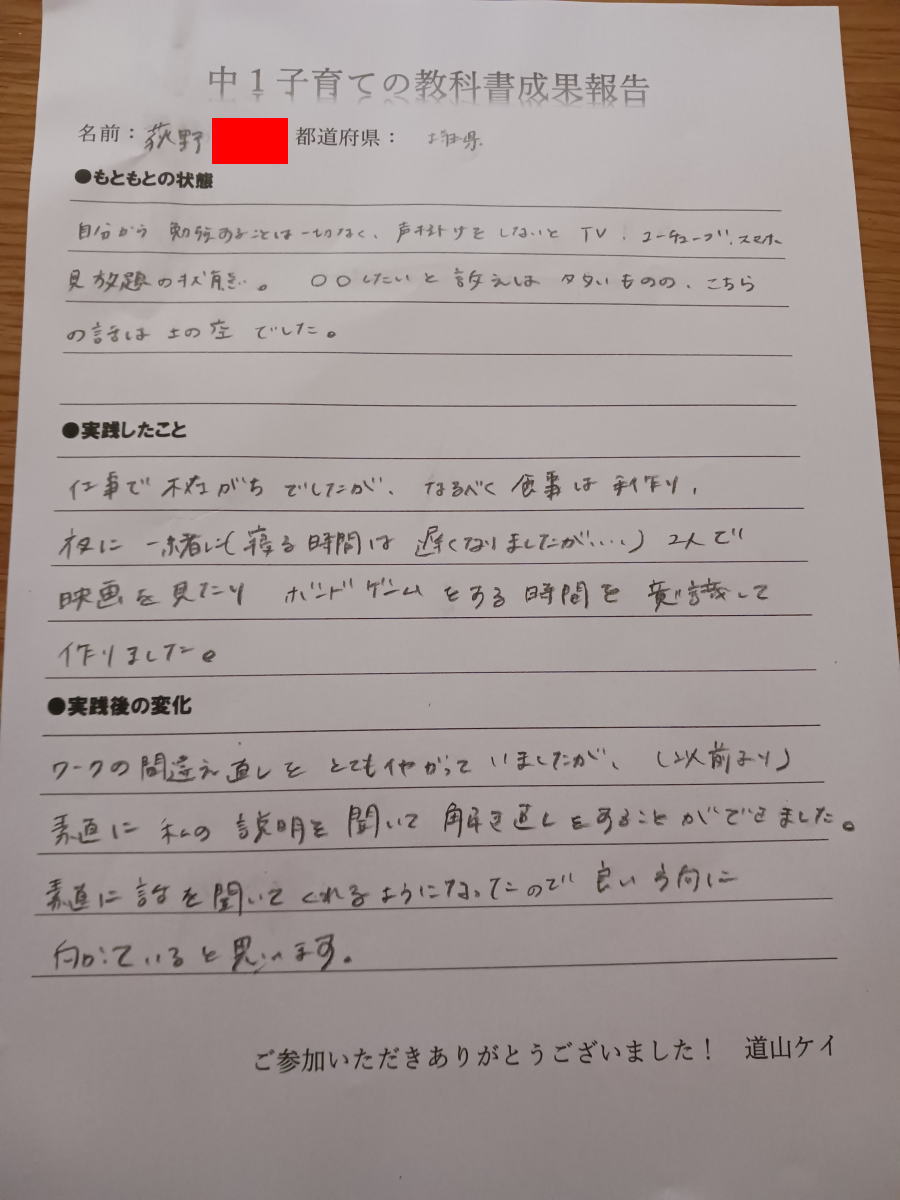 中1子育ての教科書成果報告
名前：荻野 都道府県：
●もともとの状態
自分から勉強することは一切なく、声掛けをしないとTV、ユーチューブ、スマホ
見放題の状態。〇〇したいと訴えは多いものの、こちら
の話は上の空でした。
●実践したこと
仕事で不在がちでしたが、なるべく食事は手作り、
夜に一緒に(寝る時間は遅くなりましたが…)2人で
映画を見たりボードゲームをする時間を意識して
作りました。
●実践後の変化
ワークの間違え直しをとてもイヤがっていましたが、(以前より)
素直に私の説明を聞いて解き直しをすることができました。
素直に話を聞いてくれるようになったので良い方向に
向かっていると思います。
ご参加いただきありがとうございました！ 道山ケイ